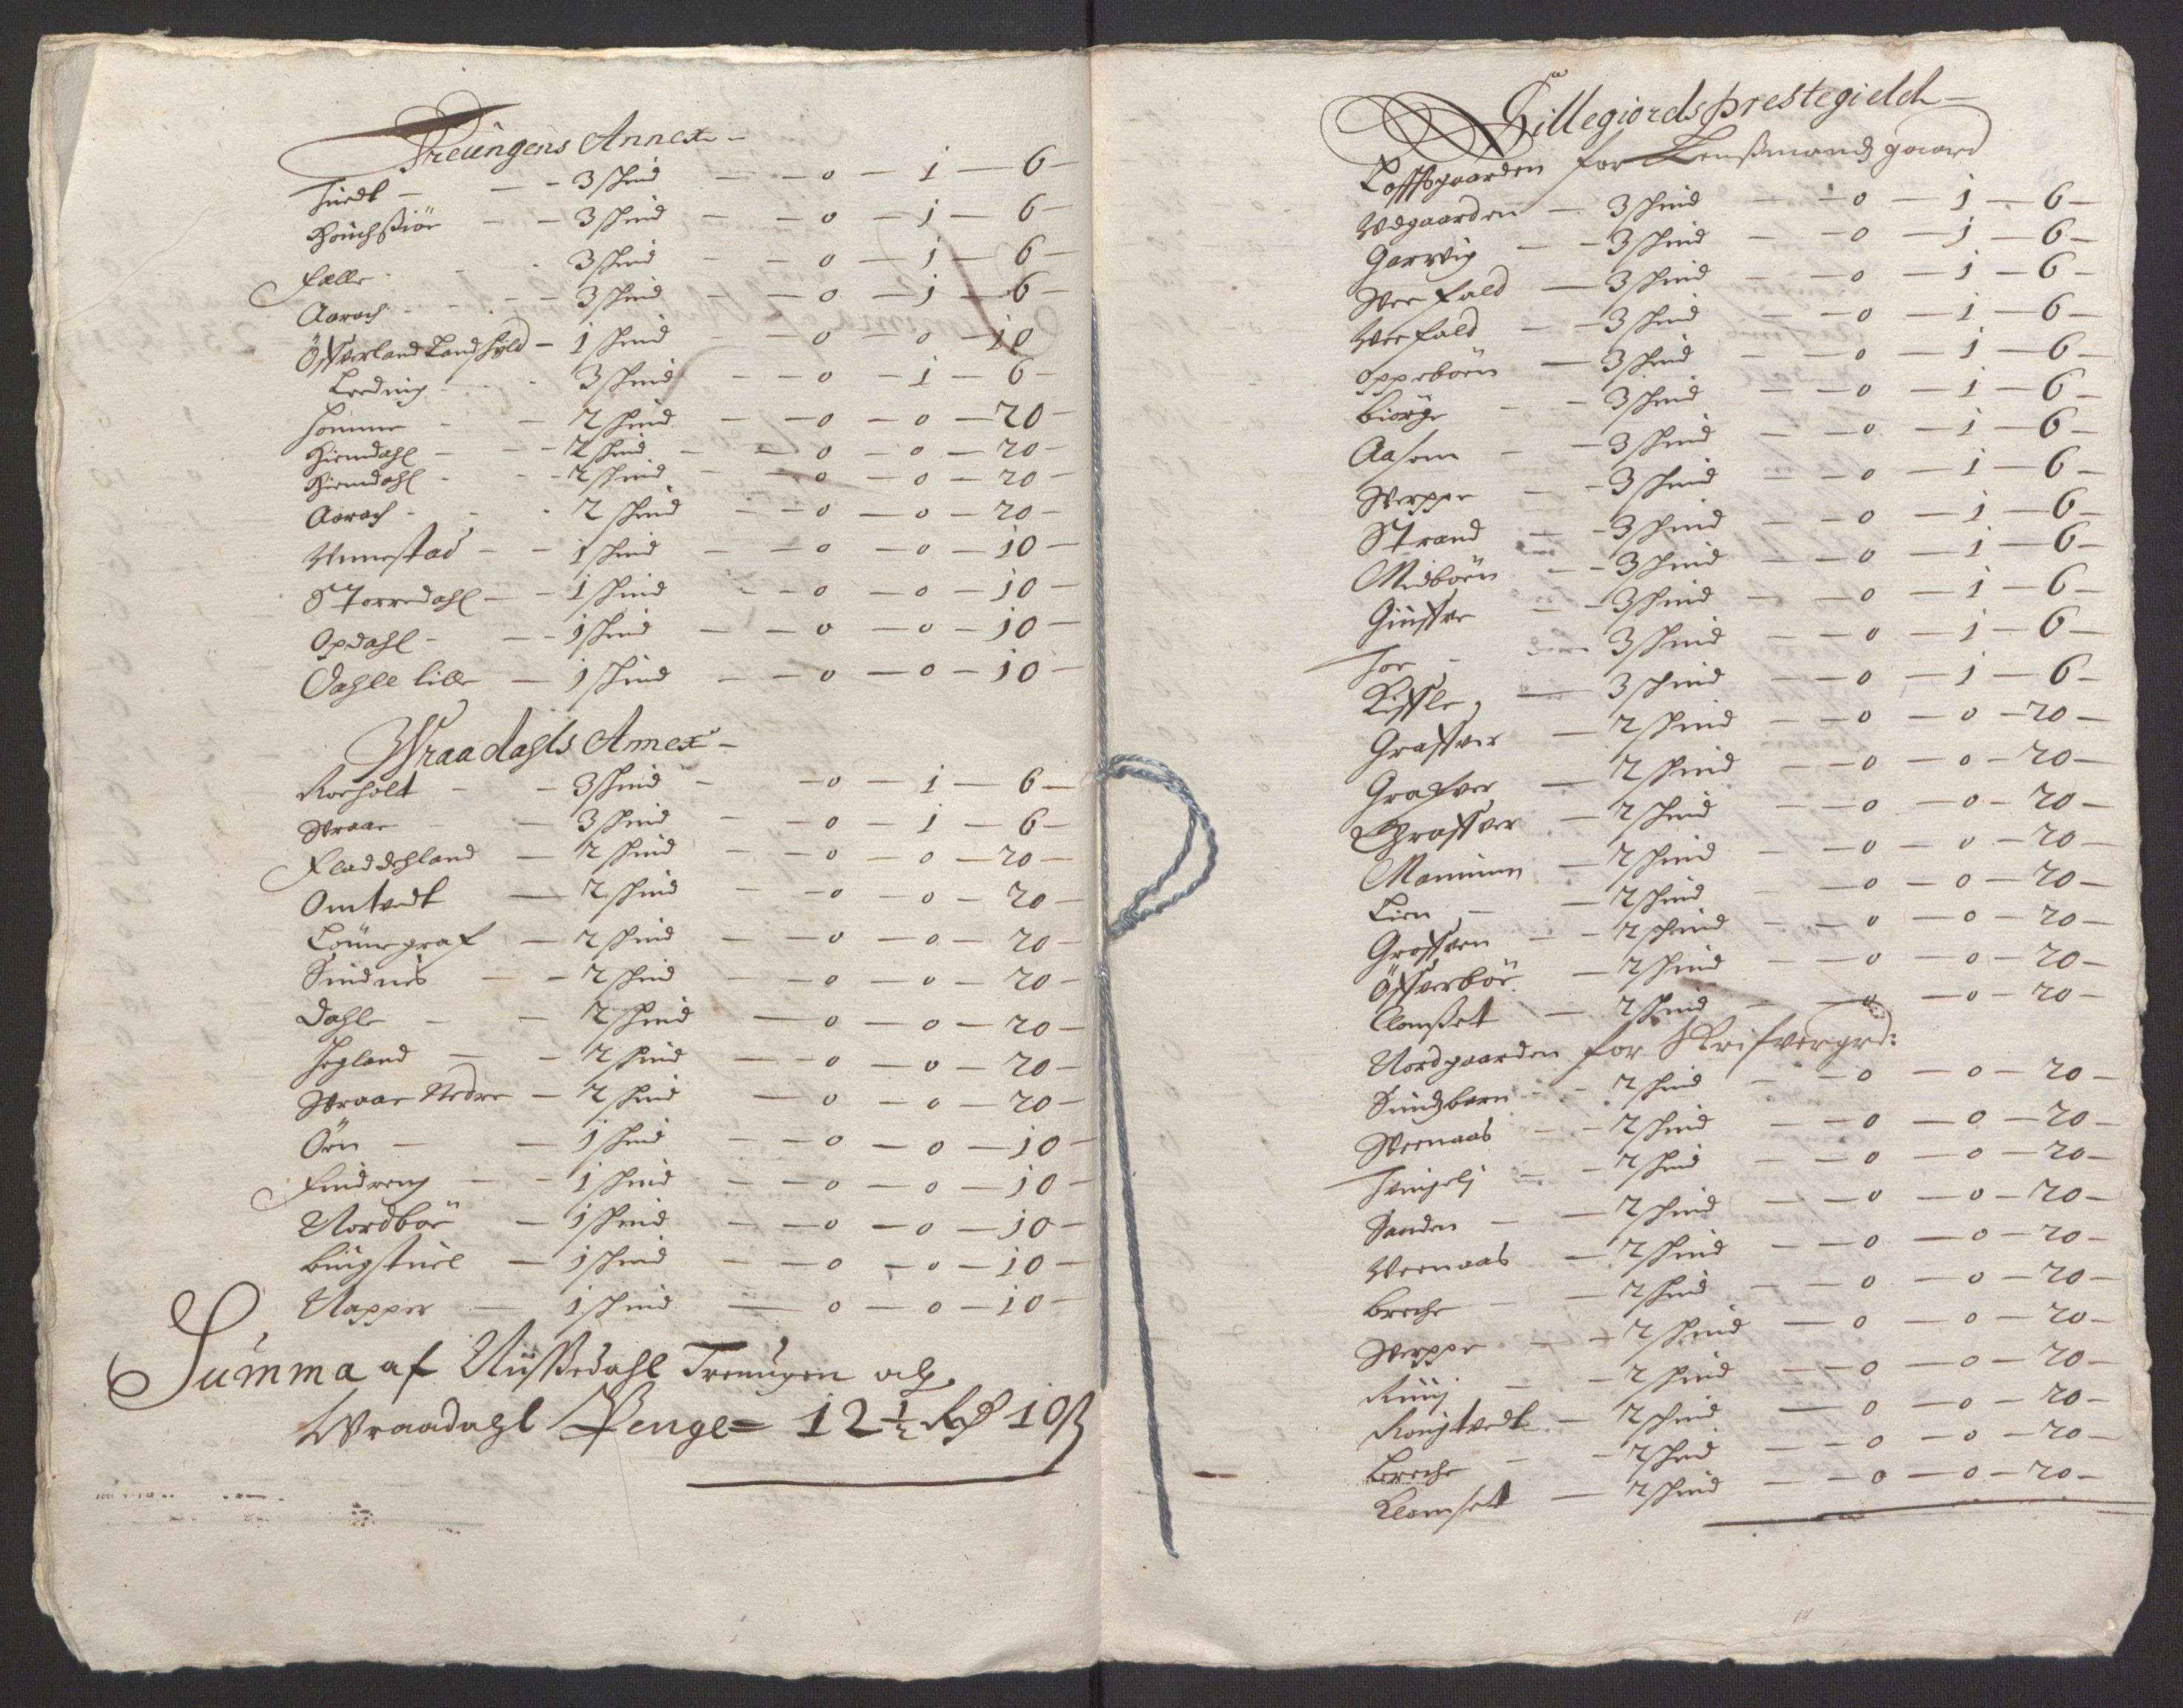 Treüngens Annex
Tuedt - 3 skind - 0 - 1 - 6
Houchsiöe - 3 skind - 0 - 1 - 6
Fælle - 3 skind - 0 - 1 - 6
Aarach - 3 skind - 0 - 1 - 6
Öffverland Landskyld - 1 skind - 0 - 0 - 10
Leeding - 3 skind - 0 - 1 - 6
Homme - 2 skind - 0 - 0 - 20
Hiemdahl - 2 skind - 0 - 0 - 20
Hiemdahl - 2 skind - 0 - 0 - 20
Aarach - 2 skind - 0 - 0 - 20
Vnnestad - 1 skind - 0 - 0 - 10
Storredahl - 1 skind - 0 - 0 - 10
Opdahl - 1 skind - 0 - 0 - 10
Dahle lille - 1 skind - 0 - 0 - 10
Wraadahls Annex
Roeholt - 3 skind - 0 - 1 - 6
Wraae - 3 skind - 0 - 1 - 6
Fladdehland - 2 skind - 0 - 0 - 20
Omtvedt - 2 skind - 0 - 0 - 20
Lönnegraf - 2 skind - 0 - 0 - 20
Sindnes - 2 skind - 0 - 0 - 20
Dahle - 2 skind - 0 - 0 - 20
Hegland - 2 skind - 0 - 0 - 20
Wraae Nedre - 2 skind - 0 - 0 - 20
Öen - 1 skind - 0 - 0 - 10
Findreng - 1 skind - 0 - 0 - 10
Nordböe - 1 skind - 0 - 0 - 10
Büigstüel - 1 skind - 0 - 0 - 10
Napper - 1 skind - 0 - 0 - 10
Summa af Nüssedahl Treungen och
Wraadahl Penge = 12½ Rd 10 ß
Hillegiords prestegield
Loffsgaarden for Lensmandz gaard
Vdgaarden - 3 skind - 0 - 1 - 6
Garvig - 3 skind - 0 - 1 - 6
Werfald - 3 skind - 0 - 1 - 6
Werfald - 3 skind - 0 - 1 - 6
Oppeböen - 3 skind - 0 - 1 - 6
Biörge - 3 skind - 0 - 1 - 6
Aasom - 3 skind - 0 - 1 - 6
Werpe - 3 skind - 0 - 1 - 6
Strand - 3 skind - 0 - 1 - 6
Midböen - 3 skind - 0 - 1 - 6
Giüffre - 3 skind - 0 - 1 - 6
Hoe - 3 skind - 0 - 1 - 6
Kiffle - 3 skind - 0 - 1 - 6
Graffver - 2 skind - 0 - 0 - 20
Grafver - 2 skind - 0 - 0 - 20
Graffver - 2 skind - 0 - 0 - 20
Manum - 2 skind - 0 - 0 - 20
Lien - 2 skind - 0 - 0 - 20
Groffven - 2 skind - 0 - 0 - 20
Öffverböe - 2 skind - 0 - 0 - 20
Clomset - 2 skind - 0 - 0 - 20
Nordgaarden for Skrifvergrd:
Sundzbarn - 2 skind - 0 - 0 - 20
Weenaas - 2 skind - 0 - 0 - 20
Tveigelj - 2 skind - 0 - 0 - 20
Sanden - 2 skind - 0 - 0 - 20
Weenaas - 2 skind - 0 - 0 - 20
Breche - 2 skind - 0 - 0 - 20
Werpe - 2 skind - 0 - 0 - 20
Rüüj - 2 skind - 0 - 0 - 20
Rongtvedt - 2 skind - 0 - 0 - 20
Breche - 2 skind - 0 - 0 - 20
Klomset - 2 skind - 0 - 0 - 20